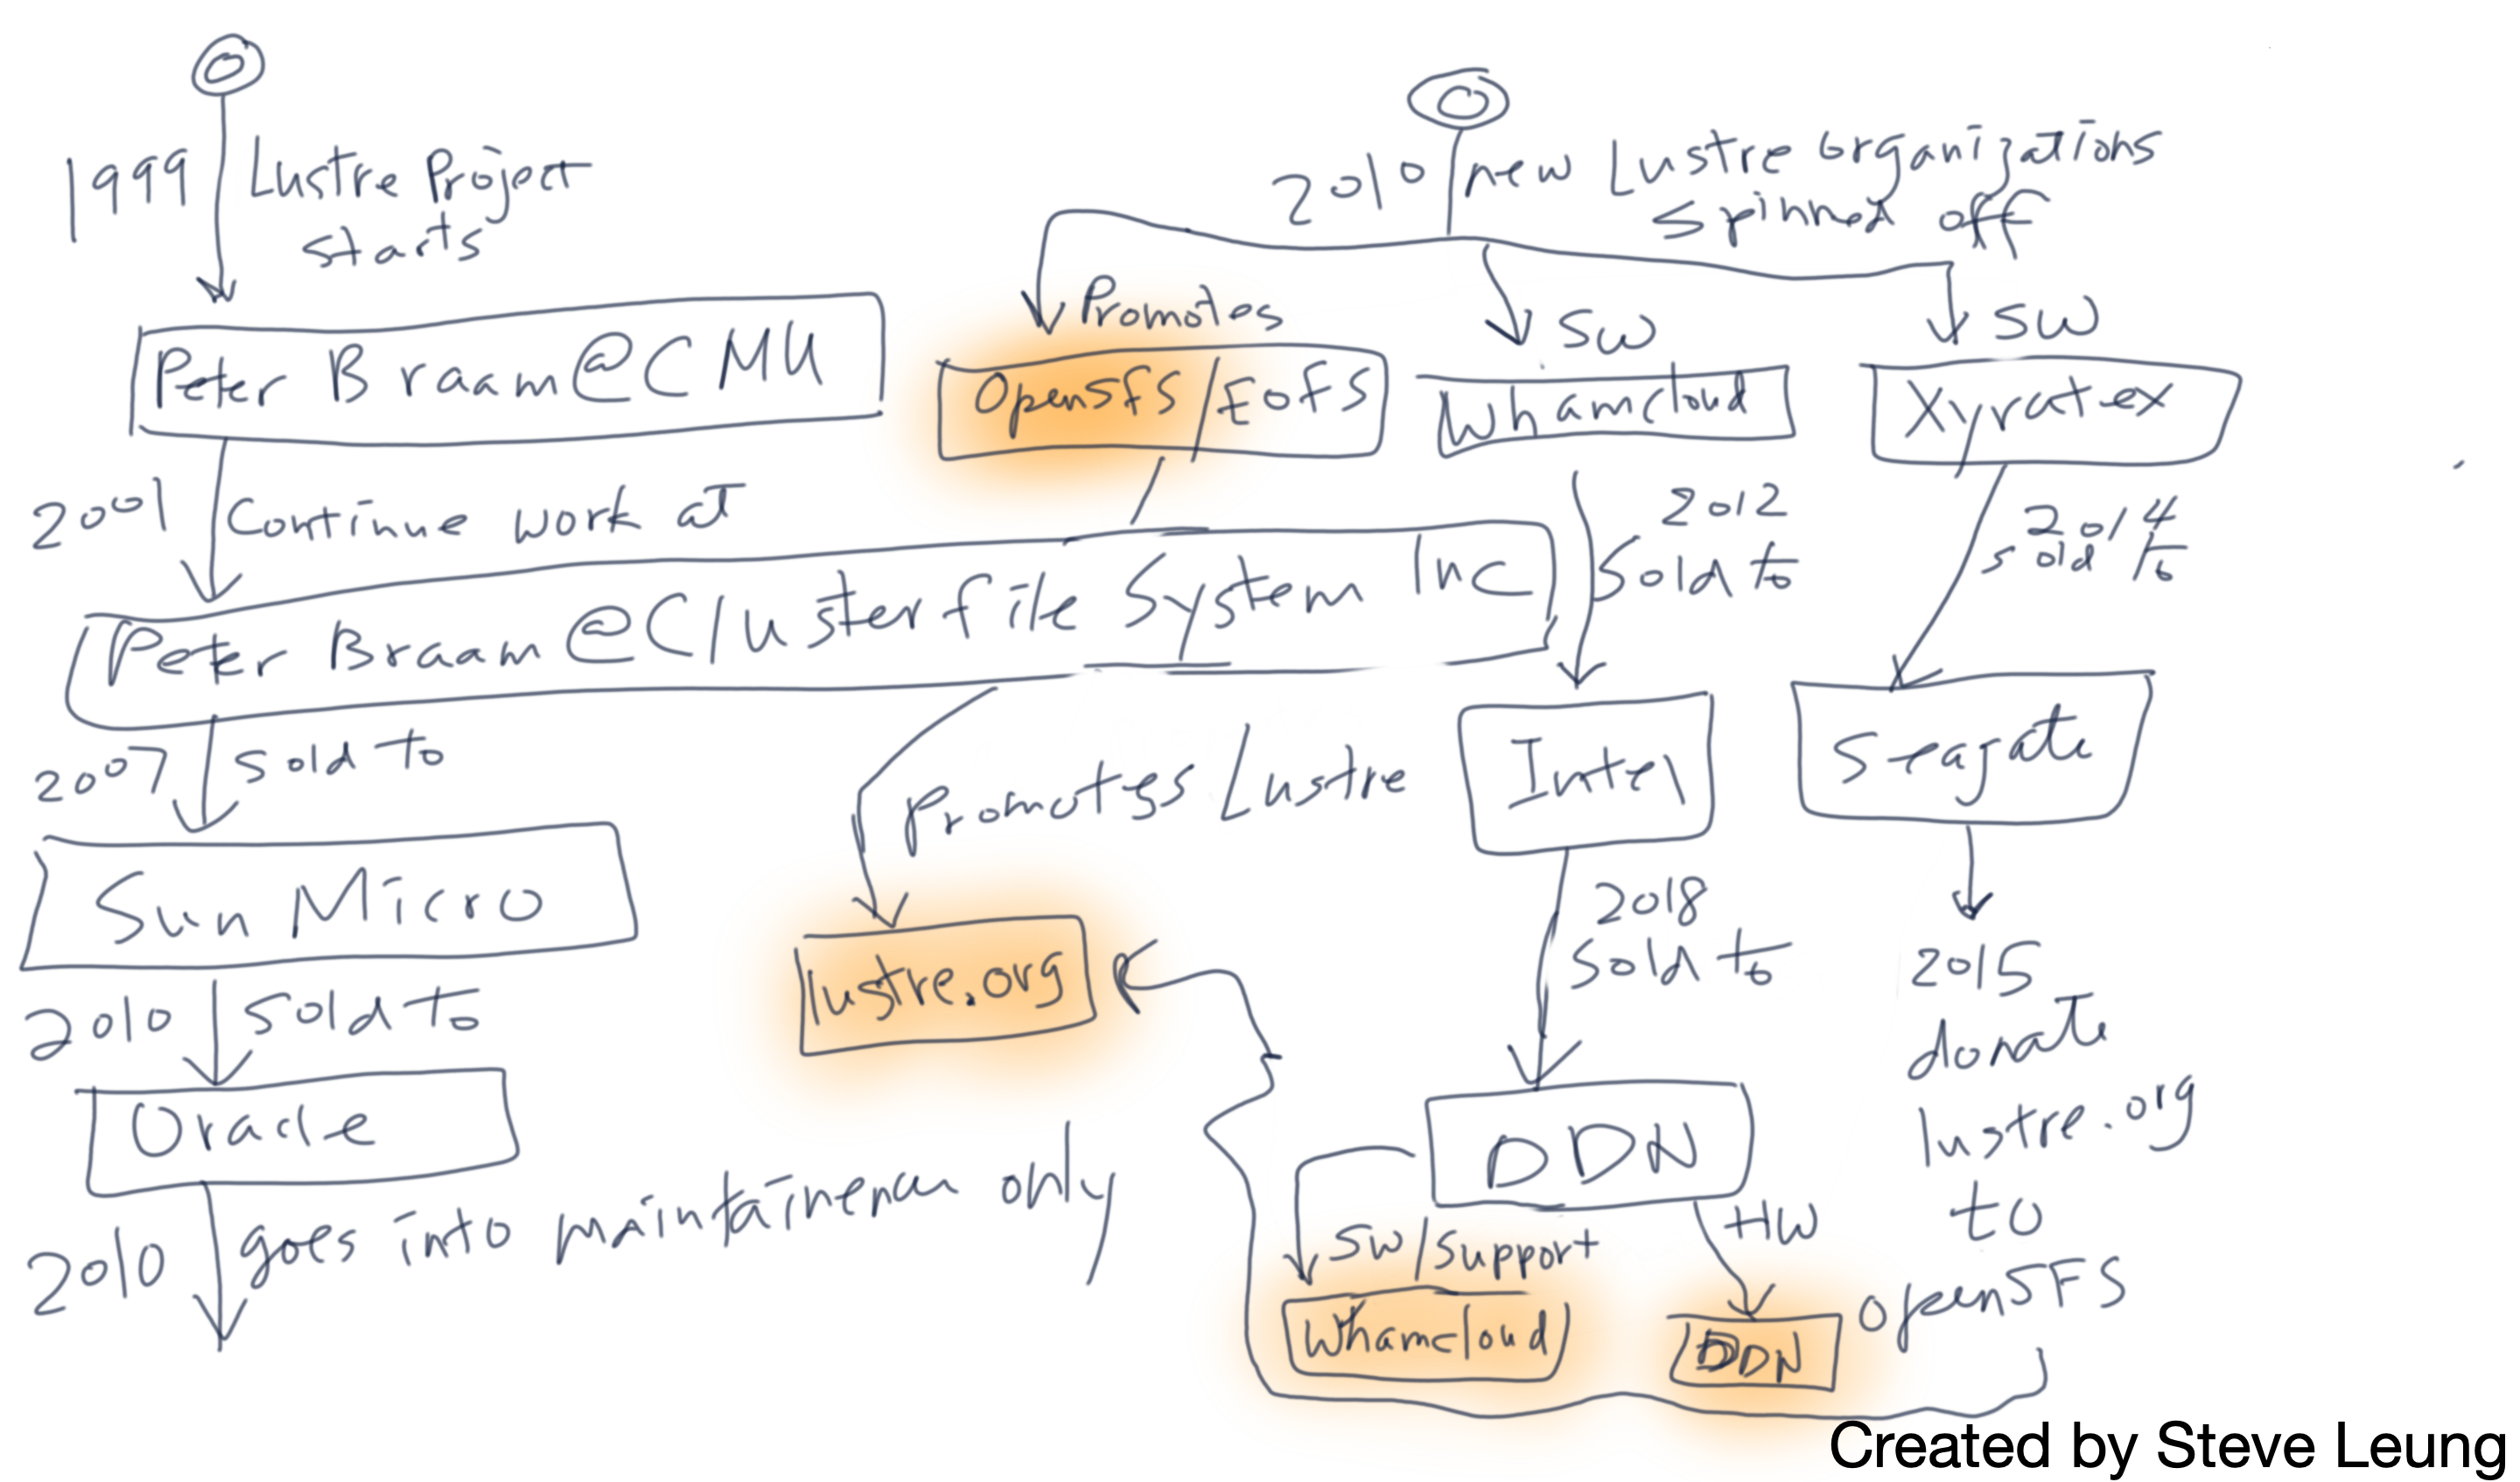 1999 Lustre Project
starts
Peter Braam@CMU
2001 Continue work at
Peter Braam@Clusterfile System Inc
2007 sold to
Sun Micro
2010 sold to
Oracle
2010 goes into maintainence only
2010 new Lustre Organizations
spinned off
Promotes
OpenSFS/EOFS
Promotes Lustre
lustre.org
SW
Whamcloud
2012
Sold to
Intel
2018
Sold to
DDN
SW/Support
Whamcloud
HW
DDN
SW
Xyratex
2014
sold to
Seagate
2015
donate
lustre.org
to
openSFS
Created by Steve Leung